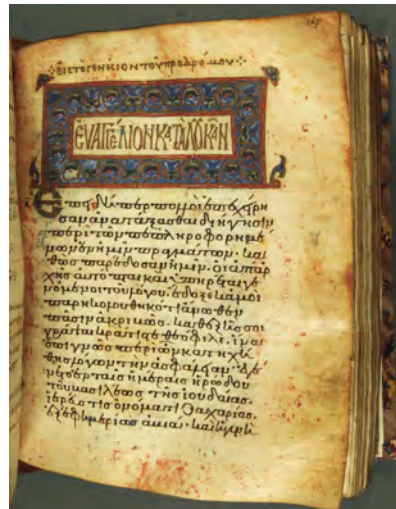 εἰς τὸ γενέσιον τοῦ προδρόμου
ΕΥΑΓΓΕΛΙΟΝ ΚΑΤΑ ΛΟΥΚΑΝ
Ἐπειδήπερ πολλοὶ ἐπεχείρη
σαν ἀνατάξασθαι διήγησιν
περὶ τῶν πεπληροφορημέ
νων ἐν ἡμῖν πραγμάτων. κα
θὼς παρέδοσαν ἡμῖν. οἱ ἀπαρ
χῆς αὐτόπται καὶ ὑπηρέται γε
νόμενοι τοῦ λόγου. ἔδοξε κἀμοὶ
παρηκολουθηκότι ἄνωθεν
πᾶσιν ἀκριβῶς. καθεξῆς σοι
γράψαι κράτιστε θεόφιλε. ἵνα ἐ
πιγνῷς περὶ ὧν κατηχή
θης λόγων τὴν ἀσφάλειαν. Ἐγέ
νετο ἐν ταῖς ἡμέραις ἡρώδου
τοῦ βασιλέως τῆς ἰουδαίας.
ἱερεύς τις ὀνόματι Ζαχαρίας.
ἐξ ἐφημερίας ἀβιά. καὶ ἡ γυνὴ